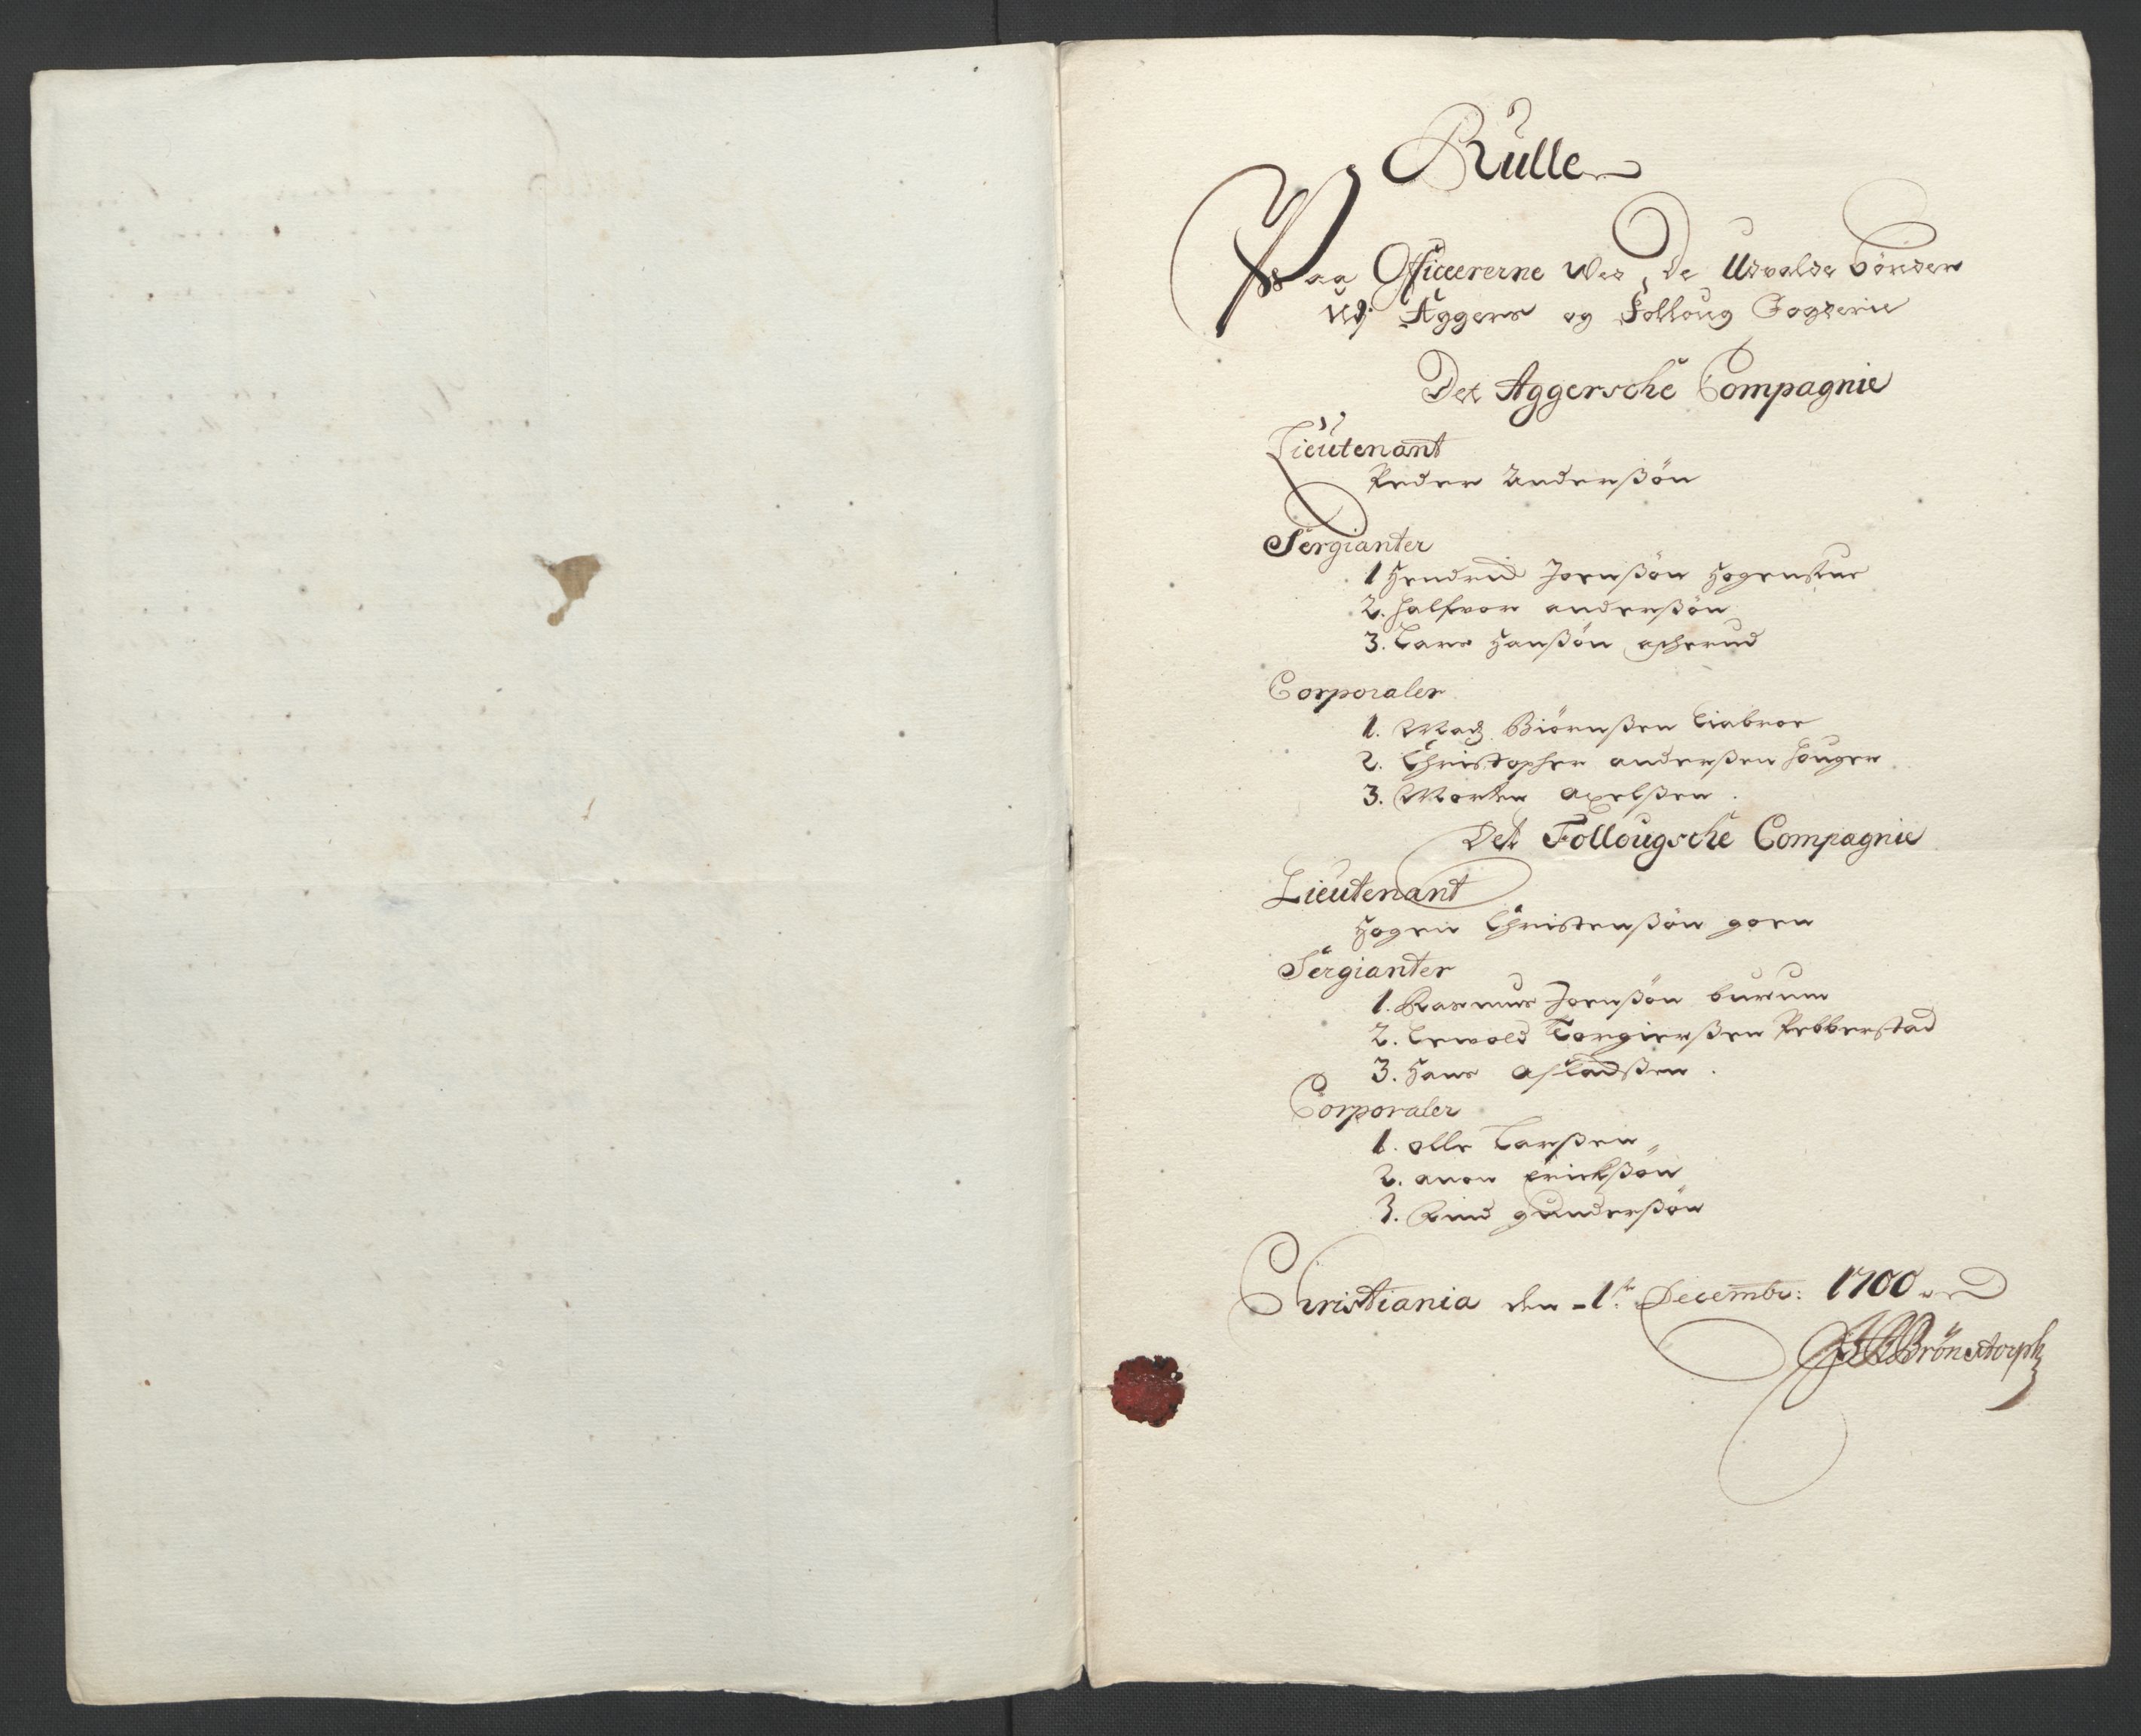 Rulle
Paa Officererne Wed De Udvalde bönder
Udj Aggers og Folloug Fogderie
Det Aggersche Compagnie
Lieutenant
Peder Anderßön
Sergianter
1 Hendrid Joenßön Hogenstue
2. Halfvor anderßön
3. Lars Hanßön
Corporaler
1. Madz Biörnßen Liabroe
2. Christopher anderßen Houger
3. Morten axelßen
Det Follougsche Compagnie
Lieutenant
Hogen Christenßön goen
Sergianter
1. Rasmus Joenßön burum
2. Lewold Torgierßen Pebberstad
3. Hans Asladßen
Corporaler
1. Olle Larßen
2. anon Erickßön
3. gunderßön
Christiania den 1te Decembr: 1700
Brönstorph